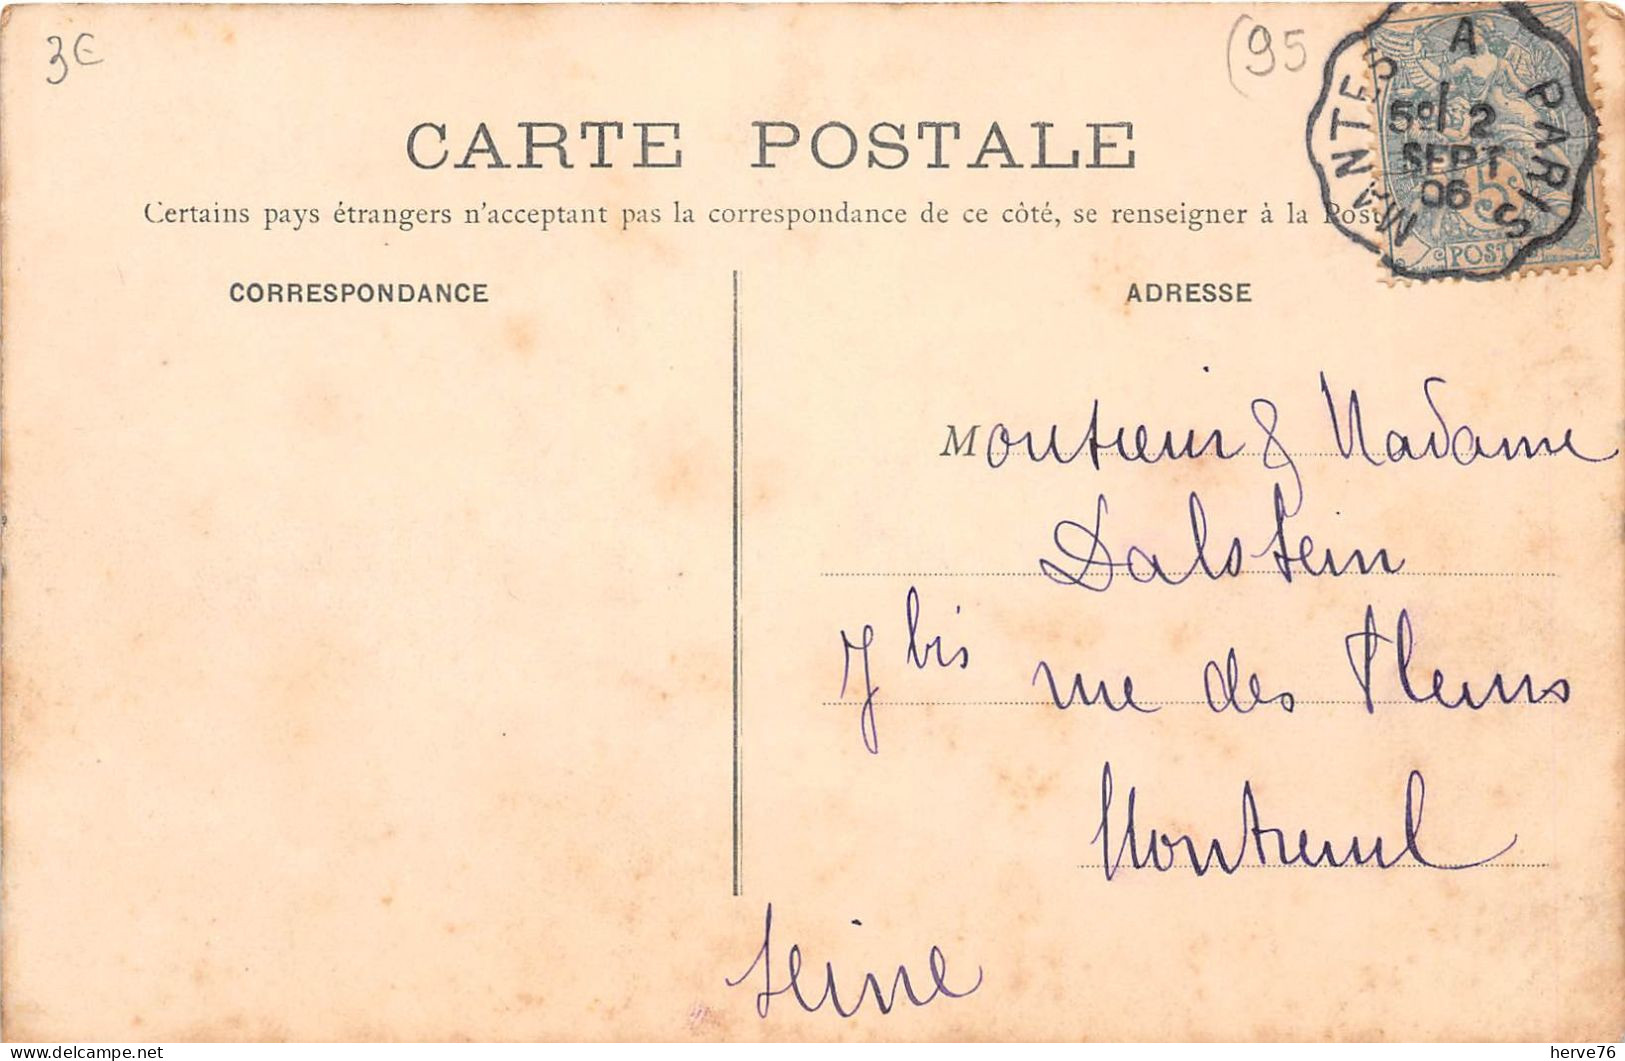 3€
(95
CARTE POSTALE
Certains pays étrangers n'acceptent pas la correspondance de ce côté, se renseigner à la Post
MANTES A PARIS
5º/ 2
SEPT
06
5c
POST
CORRESPONDANCE
ADRESSE
Monsieur & Madame
Dalstein
7 bis rue des Fleurs
Montreuil
Seine
delcampe.net
herve76